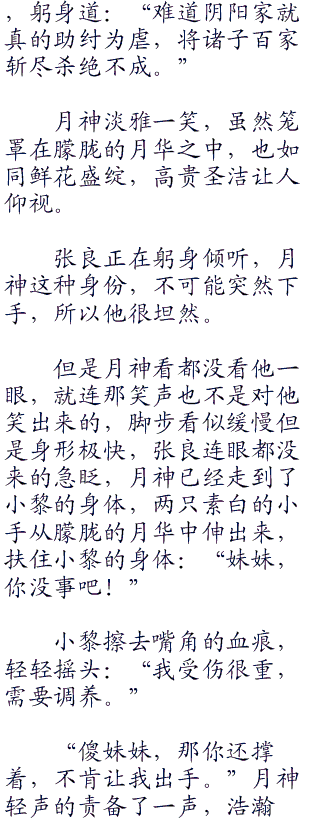 ，躬身道：“难道阴阳家就
真的助纣为虐，将诸子百家
斩尽杀绝不成。”
月神淡雅一笑，虽然笼
罩在朦胧的月华之中，也如
同鲜花盛绽，高贵圣洁让人
仰视。
张良正在躬身倾听，月
神这种身份，不可能突然下
手，所以他很坦然。
但是月神看都没看他一
眼，就连那笑声也不是对他
笑出来的，脚步看似缓慢但
是身形极快，张良连眼都没
来的急眨，月神已经走到了
小黎的身体，两只素白的小
手从朦胧的月华中伸出来，
扶住小黎的身体：“妹妹，
你没事吧！”
小黎擦去嘴角的血痕，
轻轻摇头：“我受伤很重，
需要调养。”
“傻妹妹，那你还撑
着，不肯让我出手。”月神
轻声的责备了一声，浩瀚